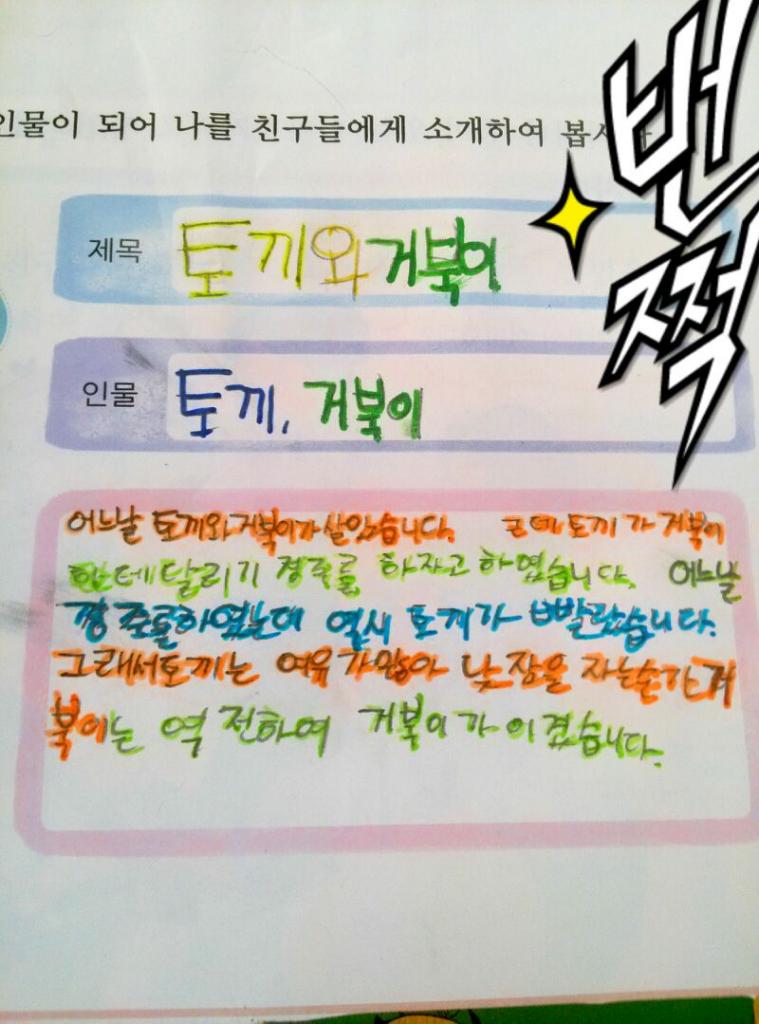 인물이 되어 나를 친구들에게 소개하여
번쩍
제목 토끼와 거북이
인물 토끼, 거북이
어느날 토끼와 거북이가 살았습니다. 근데 토끼가 거북이
한테 달리기 경주를 하자고 하였습니다. 어느날
경주를하였는데 열시 토끼가 빨랐습니다.
그래서토끼는 여유가많아 낮잠을 자는순간 거
북이는 역전하여 거북이가 이겼습니다.